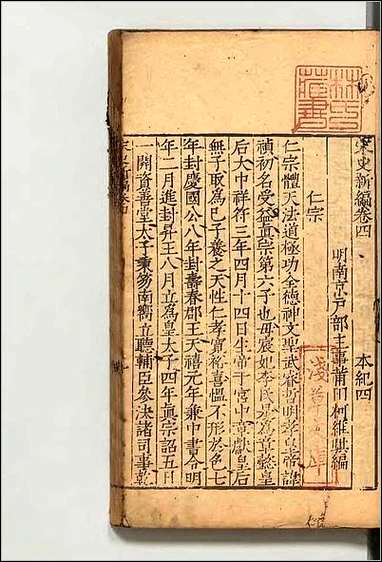 林氏
藏書
宋史新編卷四
本紀四
明南京戶部主事莆田柯維騏編
淺草文庫
仁宗
仁宗體天法道極功全德神文聖武睿哲明孝皇帝諱
禎初名受益真宗第六子也母宸妃李氏是為章懿皇
后大中祥符三年四月十四日生章獻皇后
無子取為己子養之天性仁孝寬裕喜慍不形於色七
年封慶國公八年封壽春郡王天禧元年兼中書令明
年二月進封昇王八月立為皇太子四年真宗詔五日
一開資善堂太子秉笏南嚮立聽輔臣參決諸司事乾